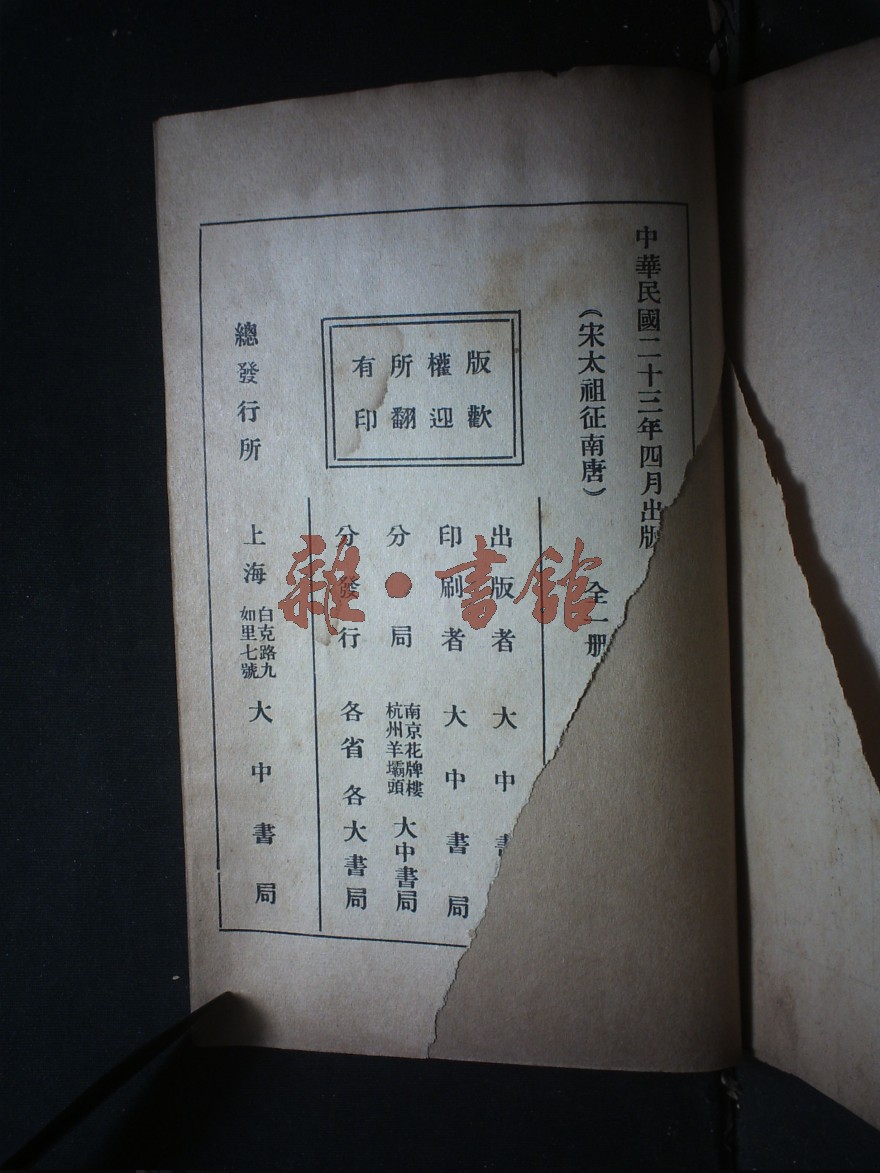 中華民國二十三年四月出版
（宋太祖征南唐）
全一册
版權所有
歡迎翻印
出版者 大中書
印刷者 大中書局
分局 南京花牌樓 杭州羊壩頭 大中書局
分發行 各省各大書局
總發行所 上海 白克路九如里七號 大中書局
雜·書館